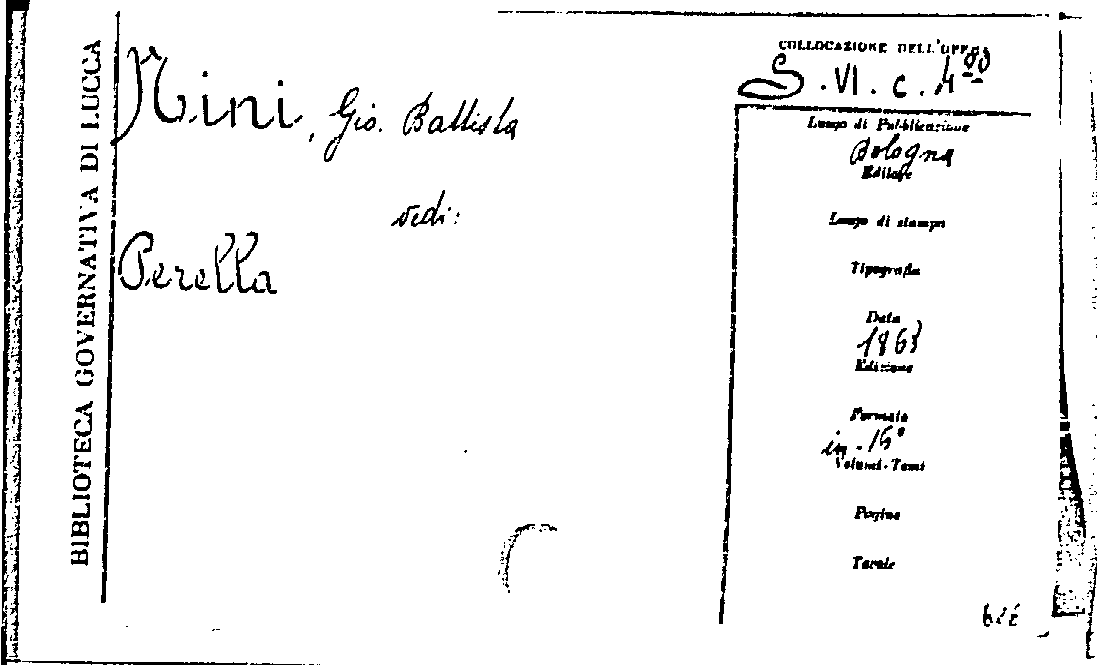 BIBLIOTECA GOVERNATIVA DI LUCCA
Nini, Gio. Battista
vedi:
Perella
COLLOCAZIONE DELL'OPERA
S. VI. c. 4
Luogo di Pubblicazione
Bologna
Editore
Luogo di stampa
Tipografia
Data
1863
Edizione
Formato
in-16°
Volumi-Tomi
Pagine
Tavole